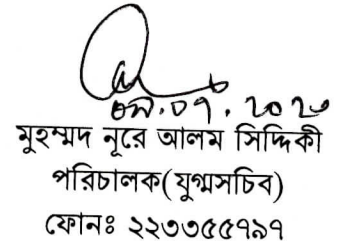 মুহম্মদ নূরে আলম সিদ্দিকী
পরিচালক(যুগ্মসচিব)
ফোনঃ ২২৩৩৫৫৭৯৭